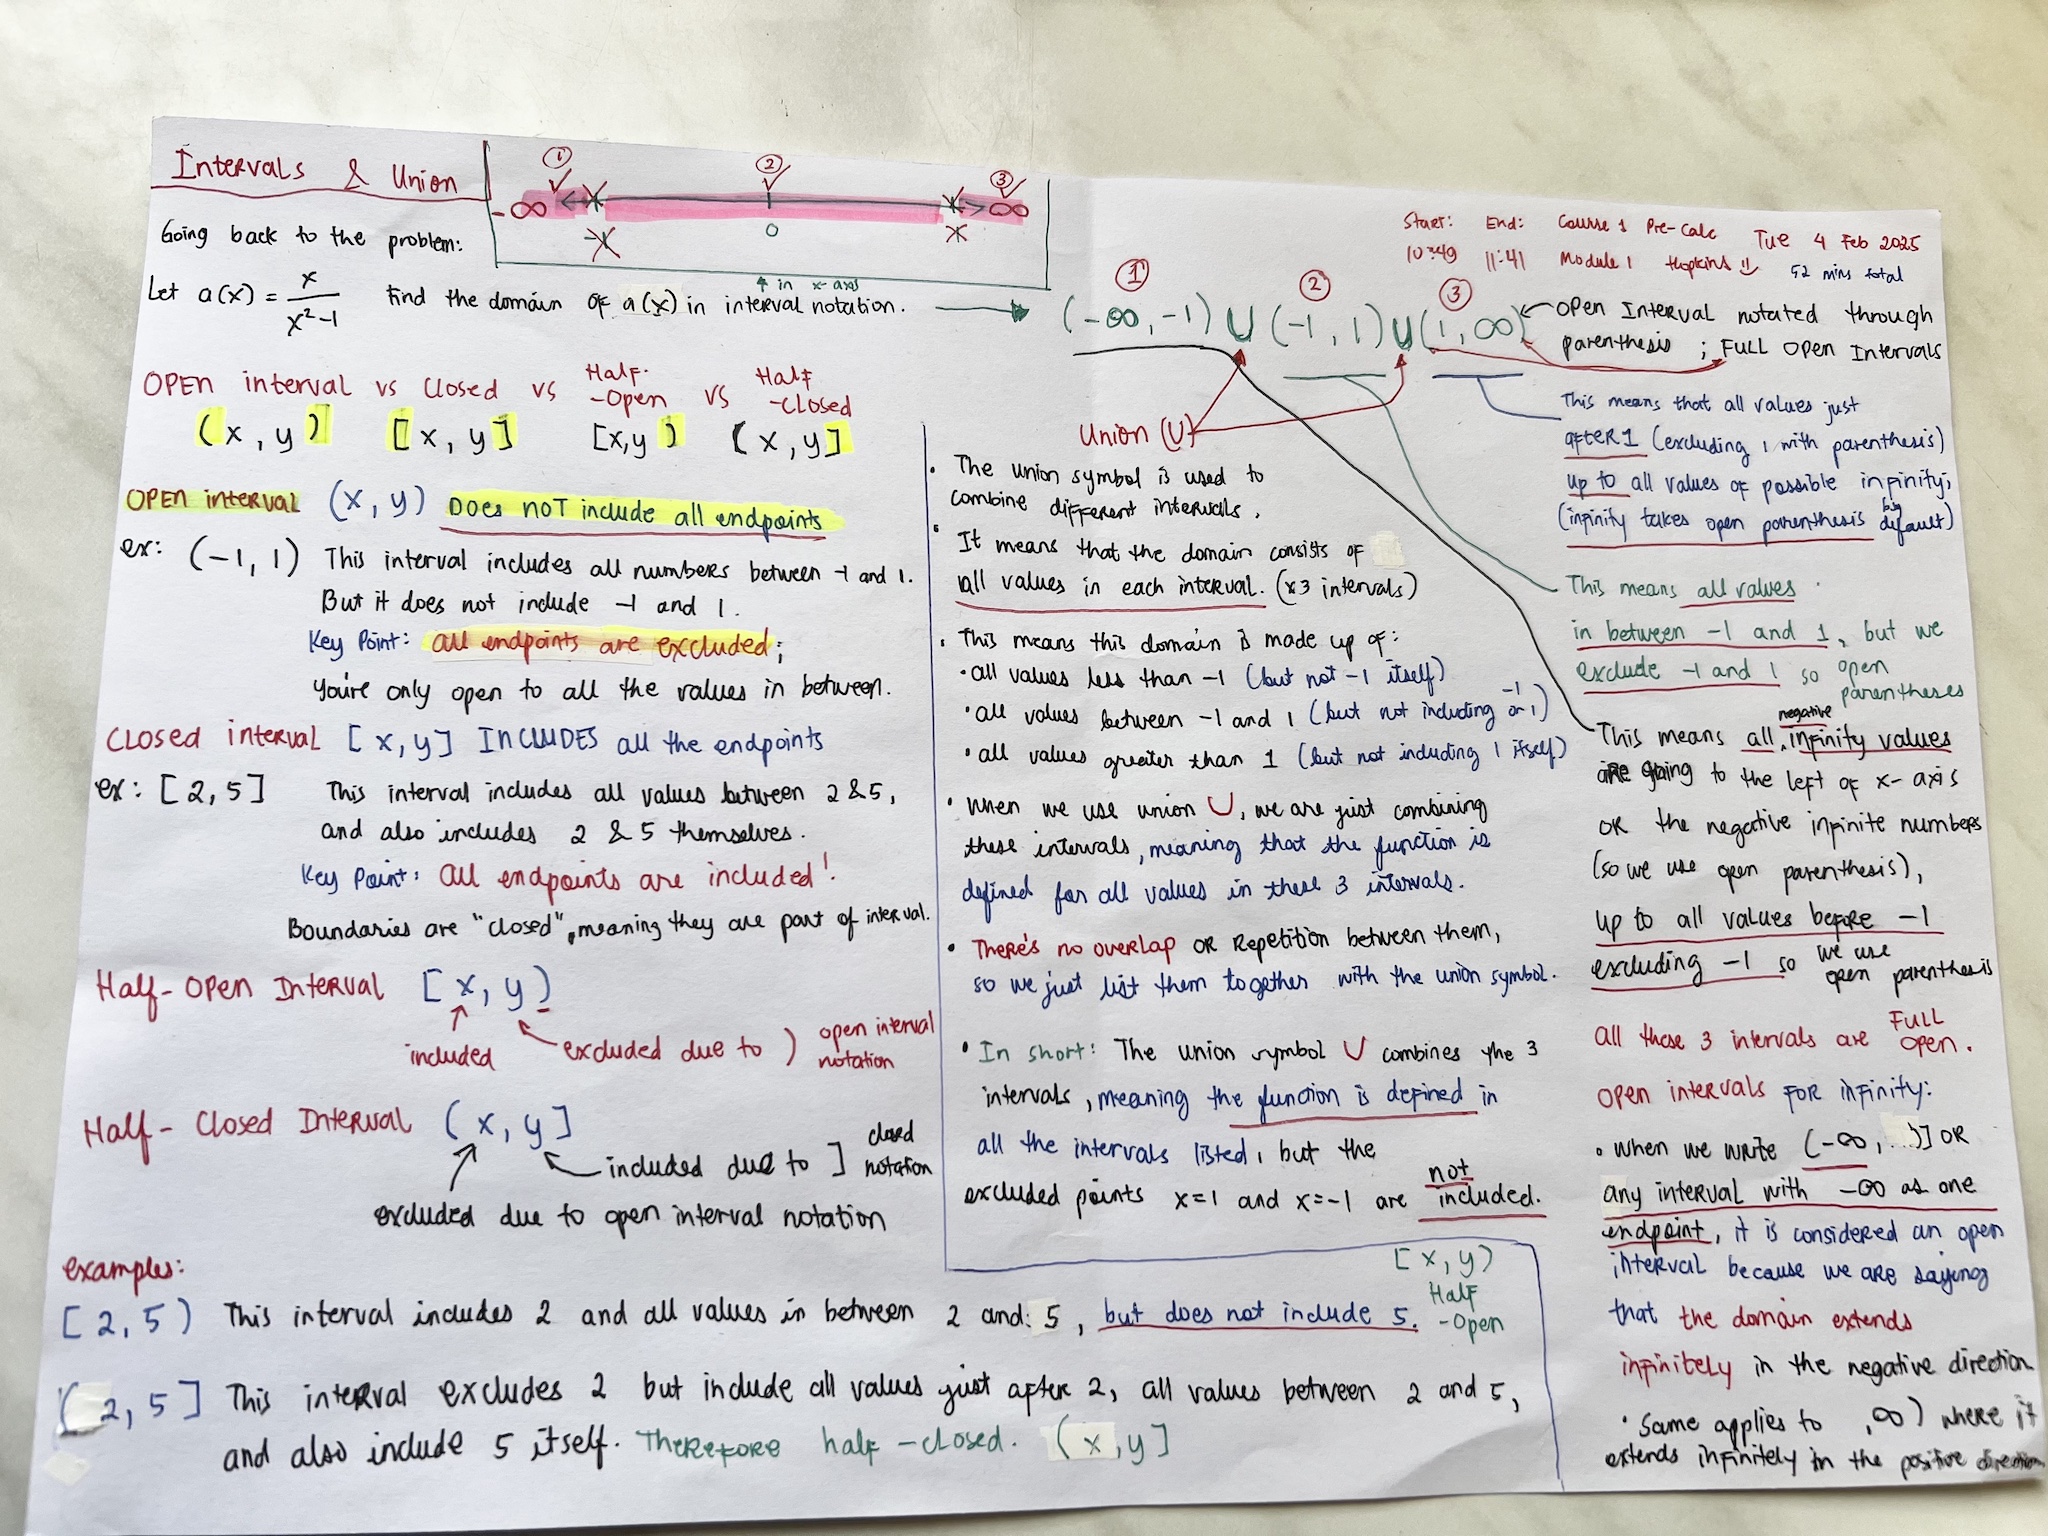 Intervals & Union
① ② ③
-∞ ∞
-1 0
Going back to the problem:
Let a(x) = x / x²-1 Find the domain of a(x) in interval notation.
↑ in x-axis
OPEN interval vs Closed vs Half-Open vs Half-Closed
(x, y) [x, y] [x,y) (x, y]
OPEN interval (x, y) Does NOT include all endpoints
ex: (-1, 1) This interval includes all numbers between -1 and 1.
But it does not include -1 and 1.
Key Point: all endpoints are excluded;
you're only open to all the values in between.
Closed interval [x, y] INCLUDES all the endpoints
ex: [2, 5] This interval includes all values between 2 & 5,
and also includes 2 & 5 themselves.
Key Point: all endpoints are included!
Boundaries are "closed", meaning they are part of interval.
Half-Open Interval [x, y)
included
excluded due to ) open interval
notation
Half-Closed Interval (x, y]
included due to ] closed
notation
excluded due to open interval notation
examples:
[2, 5) This interval includes 2 and all values in between 2 and: 5, but does not include 5.
[x, y)
Half
-Open
(2, 5] This interval excludes 2 but include all values just after 2, all values between 2 and 5,
and also include 5 itself. Therefore half-closed. (x, y]
Start: End: Course 1 Pre-Calc Tue 4 Feb 2025
10:49 11:41 Module 1 Hopkins 52 mins total
① ② ③
(-∞, -1) ∪ (-1, 1) ∪ (1, ∞)
Union (∪)
• The union symbol is used to
combine different intervals.
• It means that the domain consists of
all values in each interval. (x3 intervals)
• This means this domain is made up of:
• all values less than -1 (but not -1 itself)
• all values between -1 and 1 (but not including -1 or 1)
• all values greater than 1 (but not including 1 itself)
• When we use union ∪, we are just combining
these intervals, meaning that the function is
defined for all values in these 3 intervals.
• There's no overlap or repetition between them,
so we just list them together with the union symbol.
• In short: The union symbol ∪ combines the 3
intervals, meaning the function is defined in
all the intervals listed, but the
excluded points x=1 and x=-1 are not included.
Open Interval notated through
parenthesis ; FULL Open Intervals
This means that all values just
after 1 (excluding 1 with parenthesis)
up to all values of possible infinity;
(infinity takes open parenthesis by default)
This means all values
in between -1 and 1, but we
exclude -1 and 1 so open
parentheses
This means all negative infinity values
are going to the left of x-axis
or the negative infinite numbers
(so we use open parenthesis),
up to all values before -1
excluding -1 so we use
open parenthesis
All these 3 intervals are FULL
open.
Open intervals for infinity:
• When we write (-∞, ...)] OR
any interval with -∞ as one
endpoint, it is considered an open
interval because we are saying
that the domain extends
infinitely in the negative direction
• Same applies to , ∞) where it
extends infinitely in the positive direction